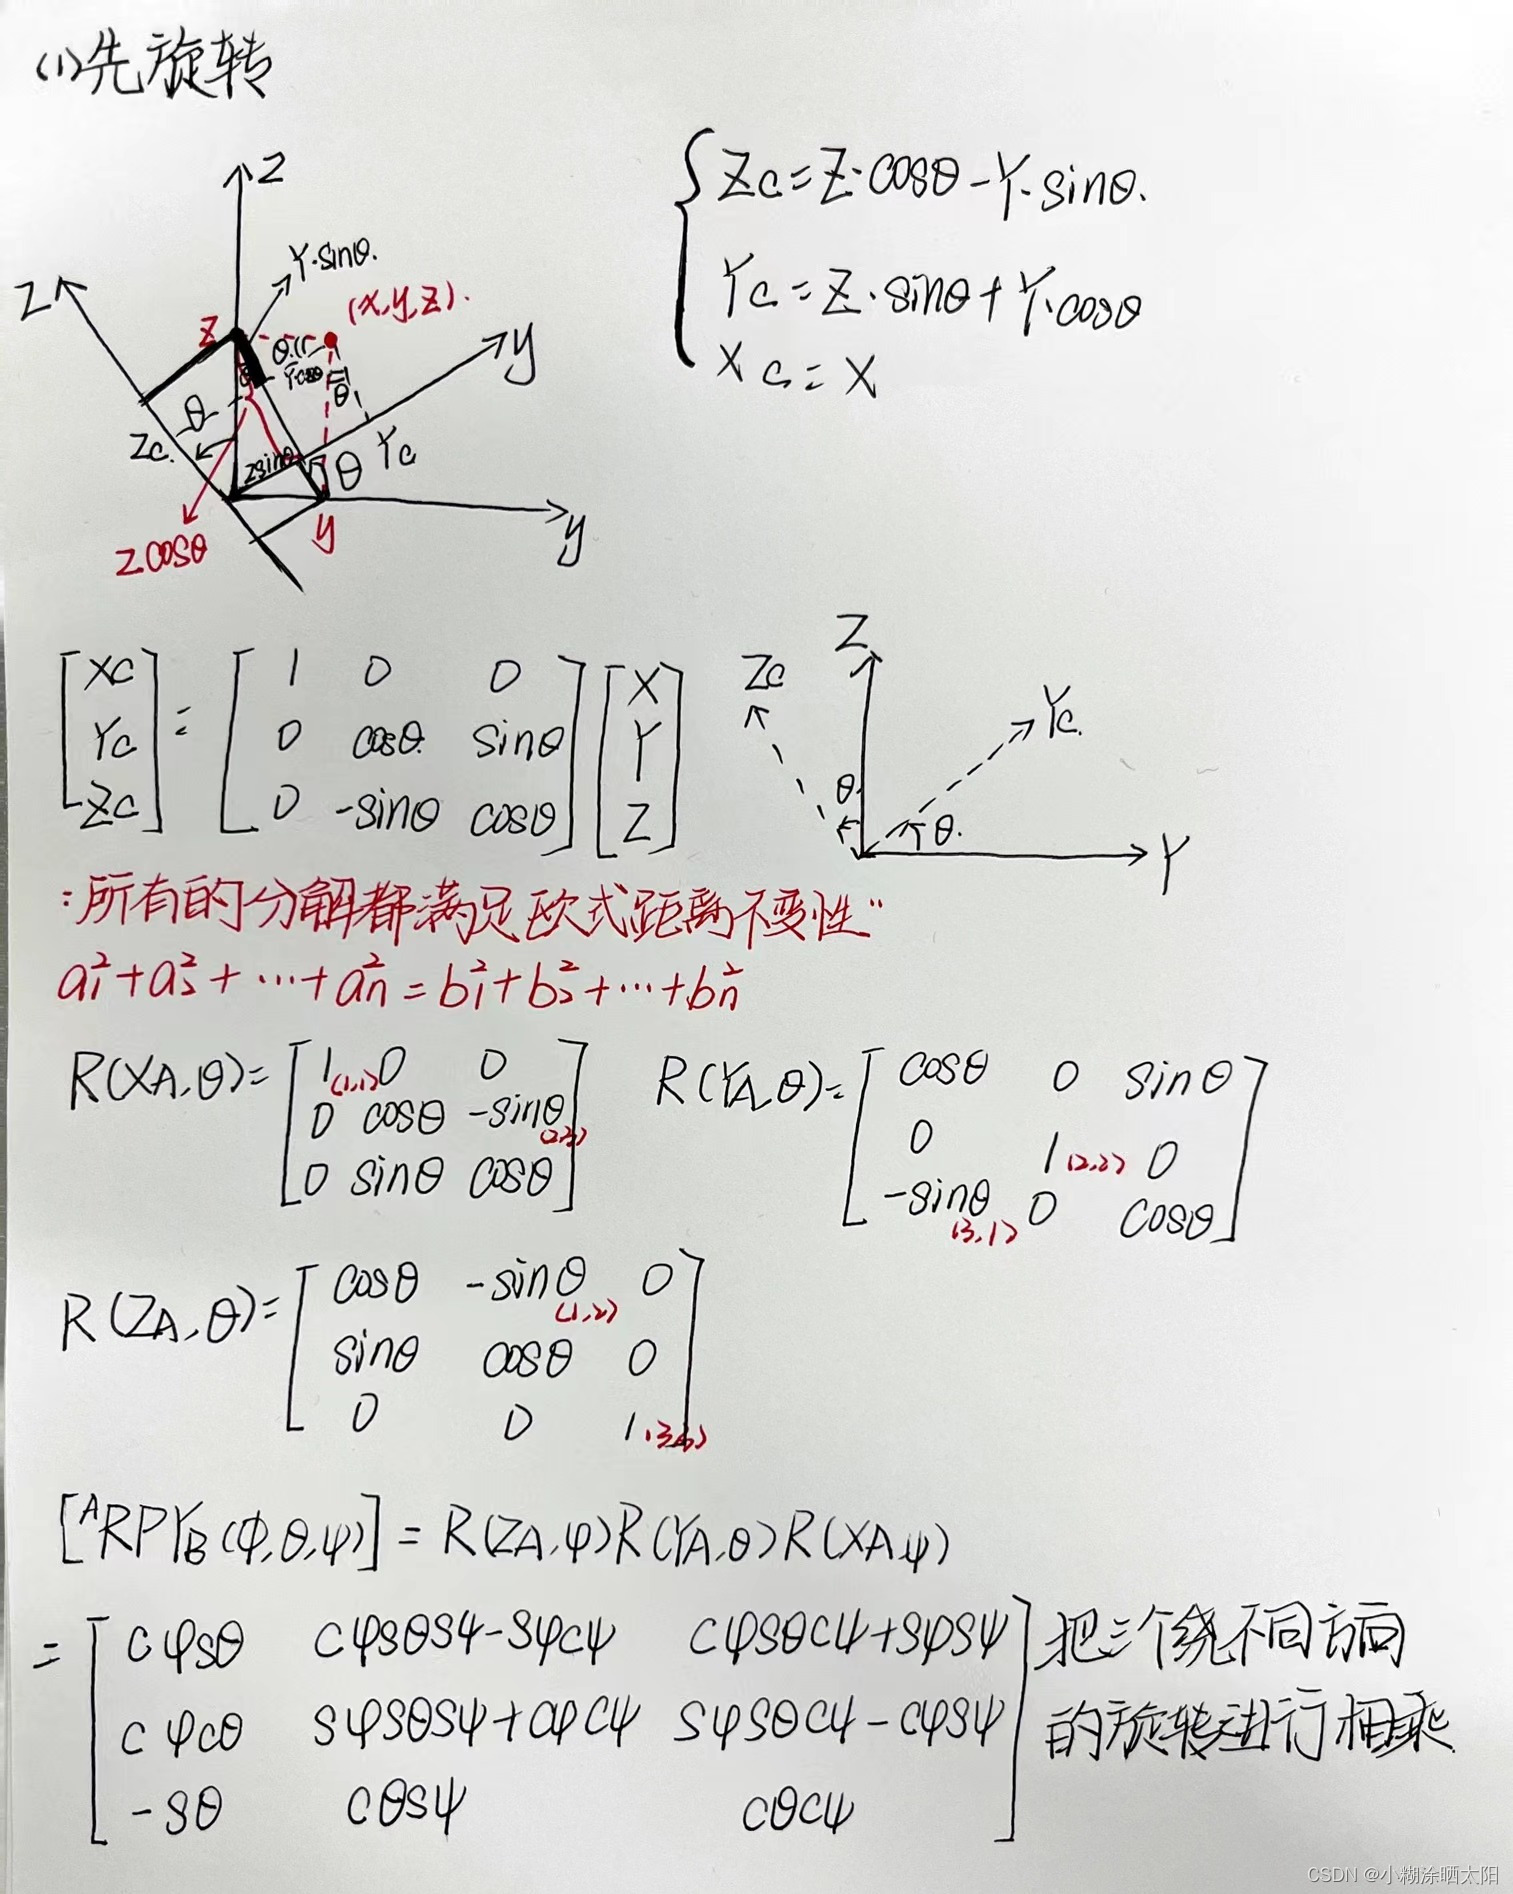 (1)先旋转
Z
Y·sinθ.
Z
(x,y,z).
z
y
θ
Y·cosθ
θ
θ
Zc.
zsinθ
θ
Yc
Zcosθ
y
y
Zc=Z·cosθ-Y·sinθ.
Yc=Z·sinθ+Y·cosθ
Xc=X
[Xc] = [1 0 0] [X]
[Yc] [0 cosθ sinθ] [Y]
[Zc] [0 -sinθ cosθ] [Z]
Z
Zc
Yc.
θ
θ.
Y
:所有的分解都满足欧式距离不变性"
a₁²+a₂²+···+aₙ²=b₁²+b₂²+···+bₙ²
R(XA,θ)= [1 (1,1) 0 0]
[0 cosθ -sinθ (2,3)]
[0 sinθ cosθ]
R(YA,θ)= [cosθ 0 sinθ]
[0 1 (2,2) 0]
[-sinθ (3,1) 0 cosθ]
R(ZA,θ)= [cosθ -sinθ (1,2) 0]
[sinθ cosθ 0]
[0 0 1 (3,3)]
[ᴬRPYB(φ,θ,ψ)]=R(ZA,φ)R(YA,θ)R(XA,ψ)
= [cφsθ cφsθsψ-sφcψ cφsθcψ+sφsψ] 把三个绕不同方向
[cφcθ sφsθsψ+cφcψ sφsθcψ-cφsψ] 的旋转进行相乘
[-sθ cθsψ cθcψ]
CSDN @小糊涂晒太阳